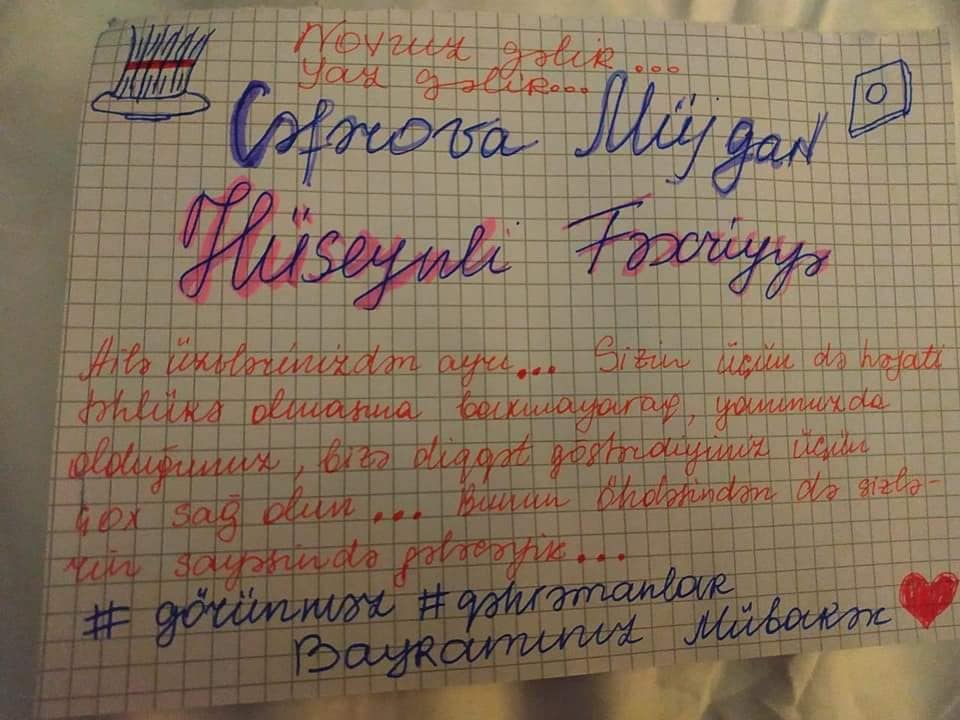 Novruz gəlir...
Yaz gəlir...
Cəfərova Müjgan
Hüseynli Fəxriyyə
Ailə üzvlərinizdən ayrı... Sizin üçün də həyati
təhlükə olmasına baxmayaraq, yanımızda
olduğunuz, bizə diqqət göstərdiyiniz üçün
çox sağ olun... Bunun öhdəsindən də sizlə-
rin sayəsində gələcəyik...
#görünməz #qəhrəmanlar
Bayramınız Mübarək